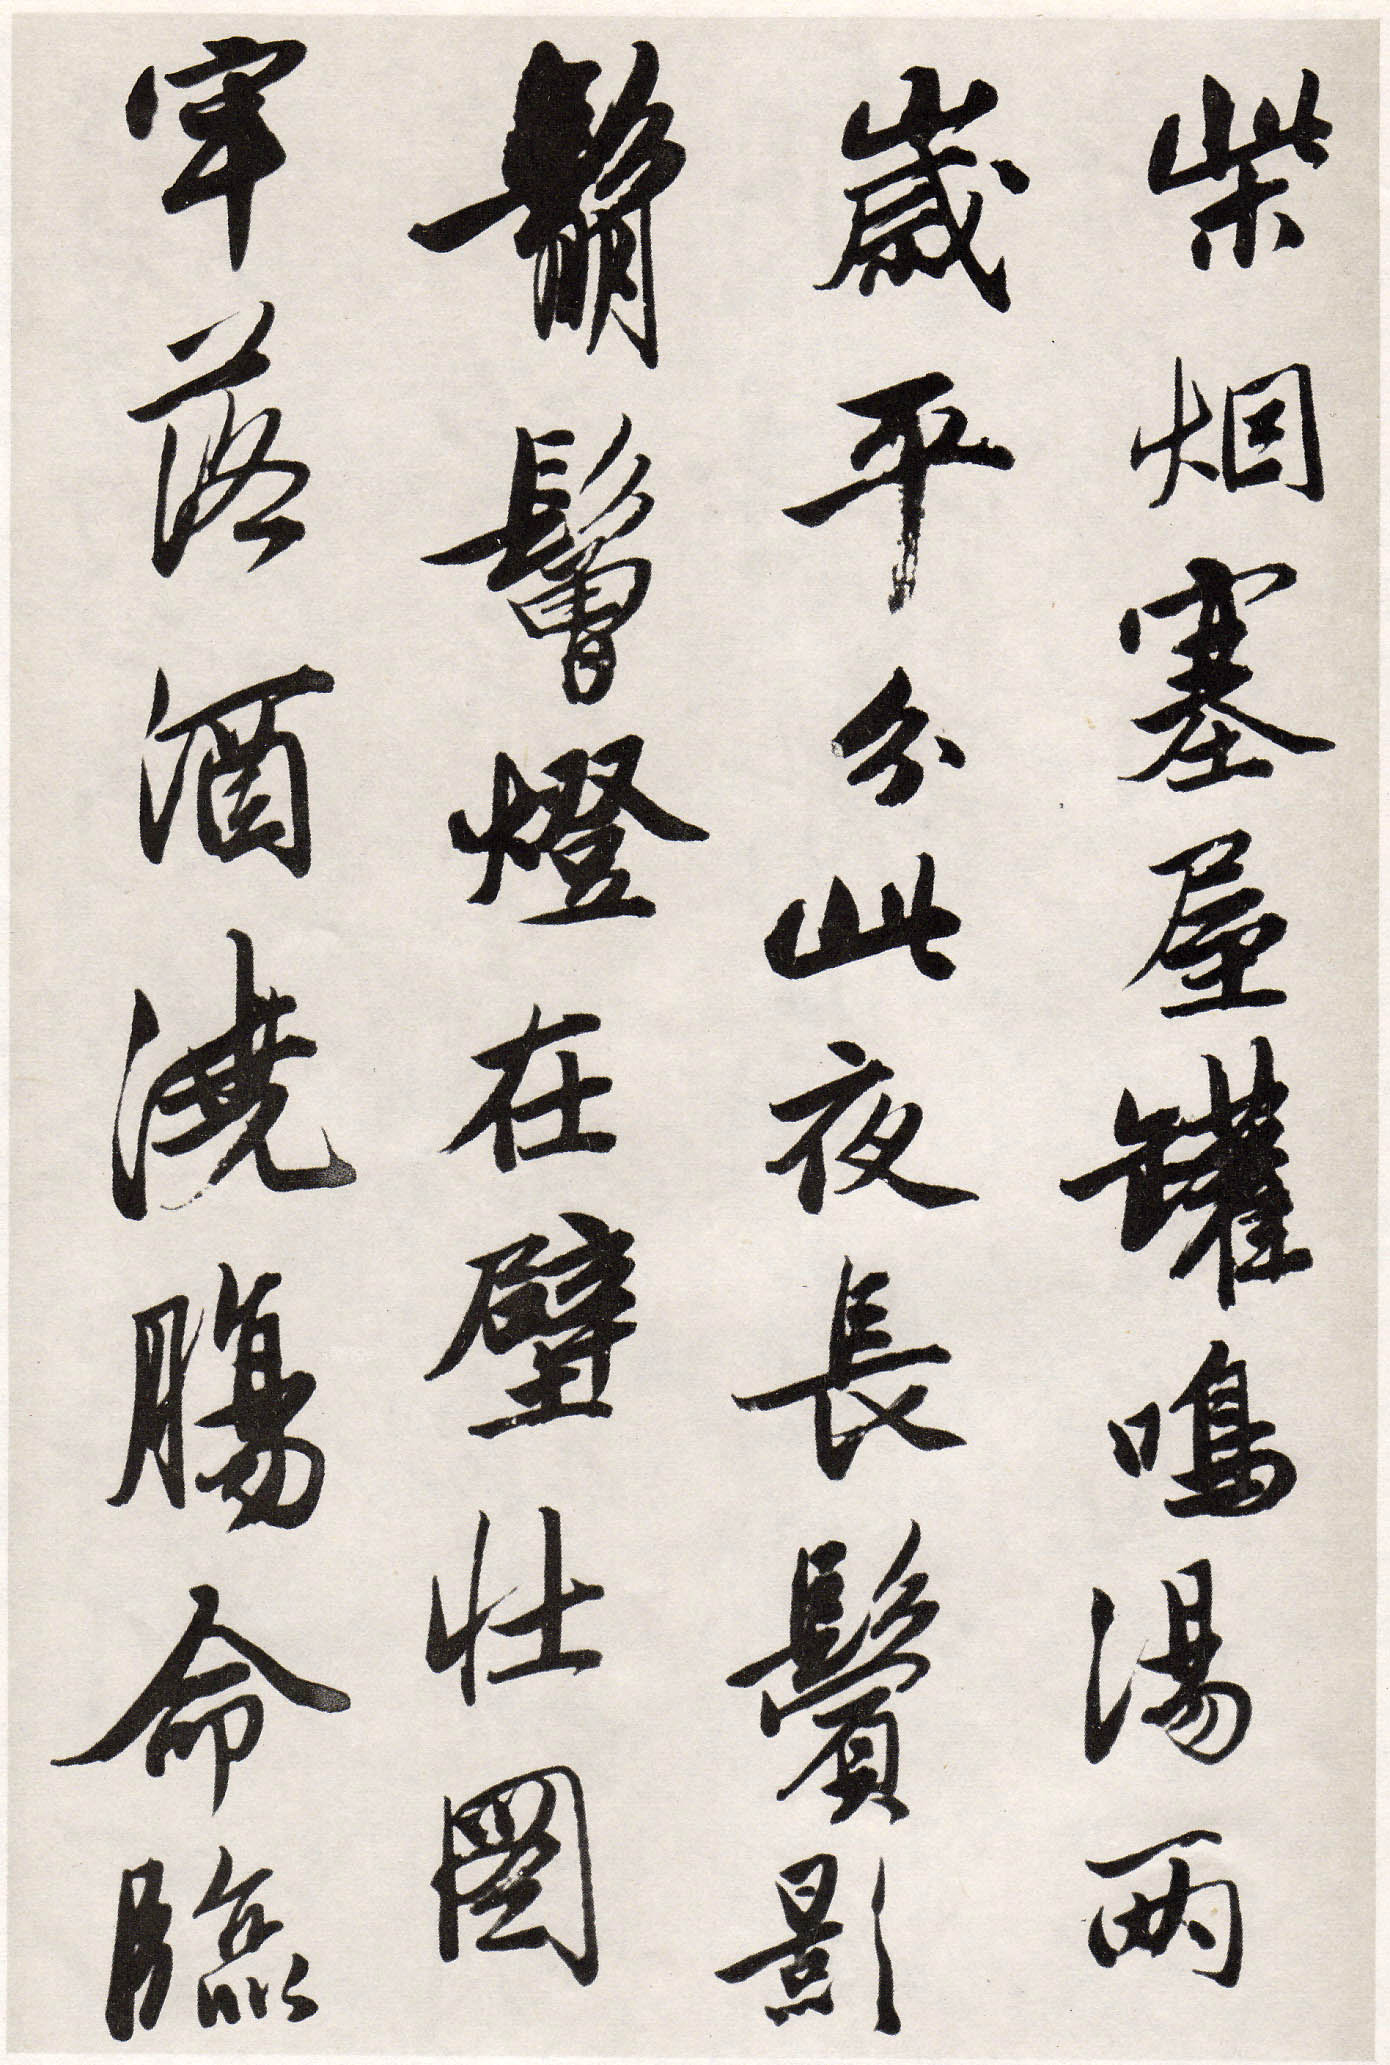 柴烟塞屋罐鳴湯兩
歲平分此夜長鬢影
鬅鬙燈在壁壮圖
牢落酒澆腸命臨